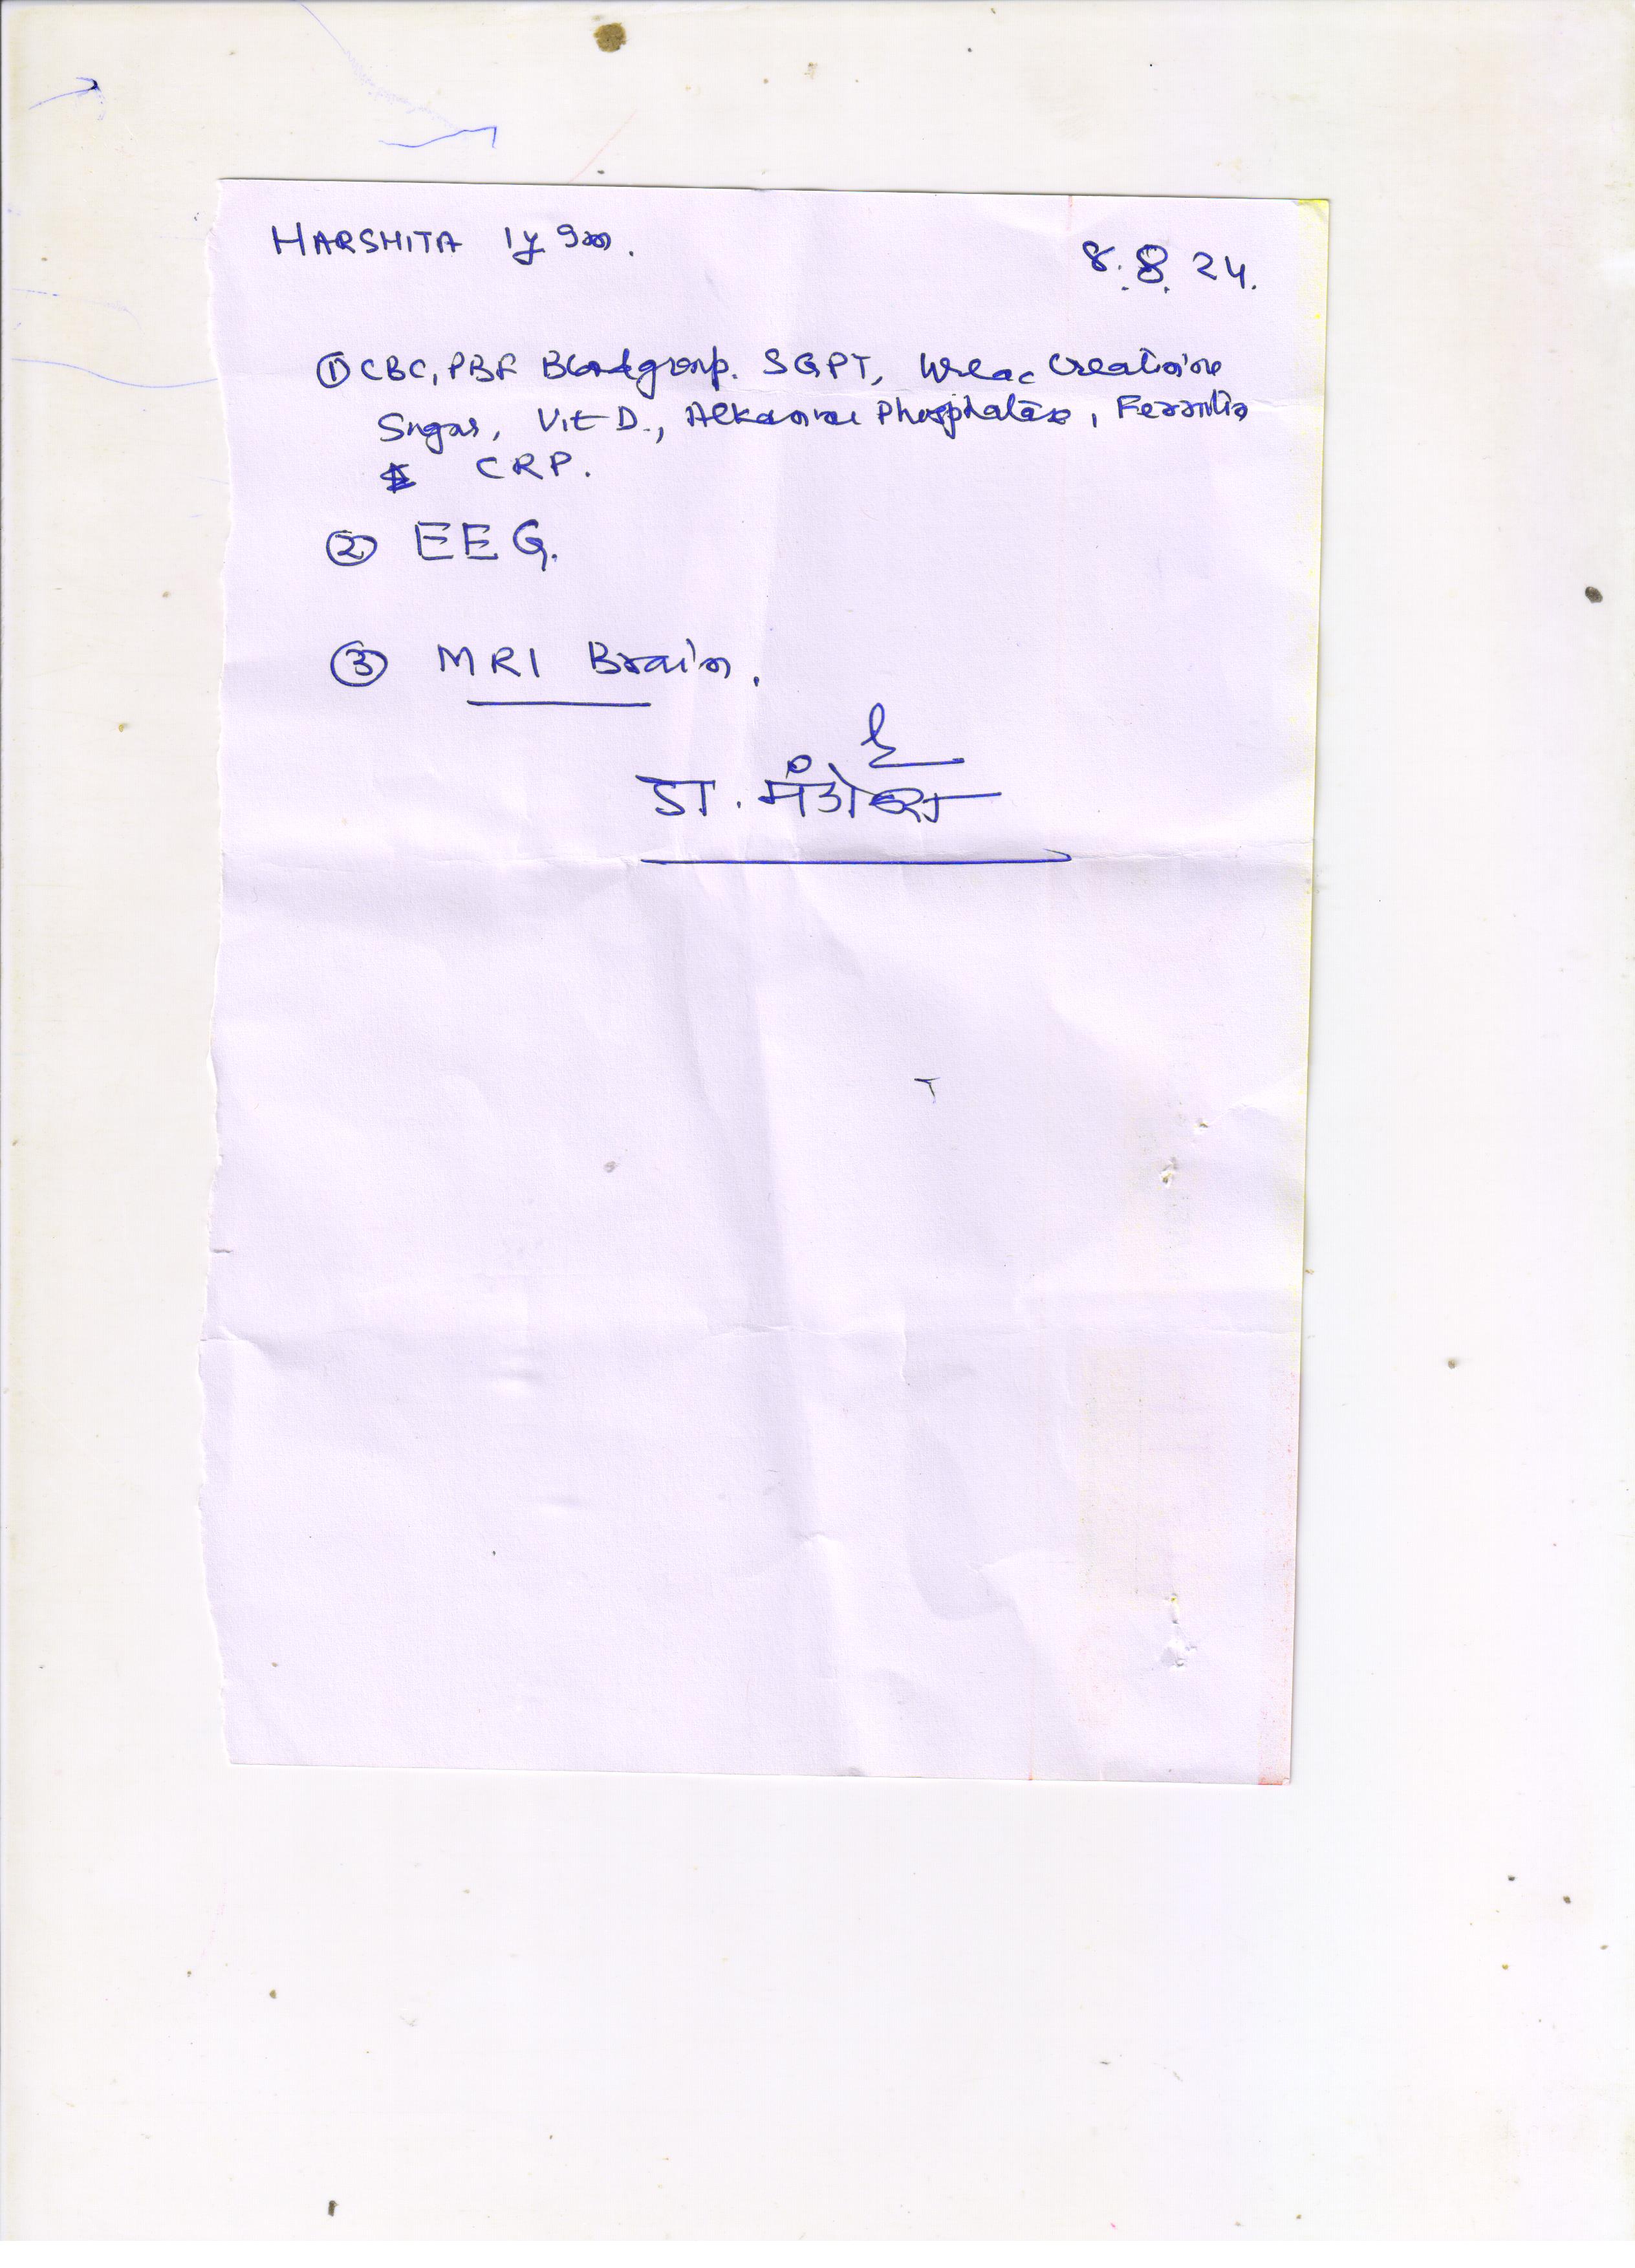 HARSHITA 1y 9m.
8.8.24.
① CBC, PBF Bloodgroup. SGPT, Urea Creatinine
Sugar, Vit D., Alkaline Phosphatase, Ferritin
CRP.
② EEG.
③ MRI Brain.
डा.